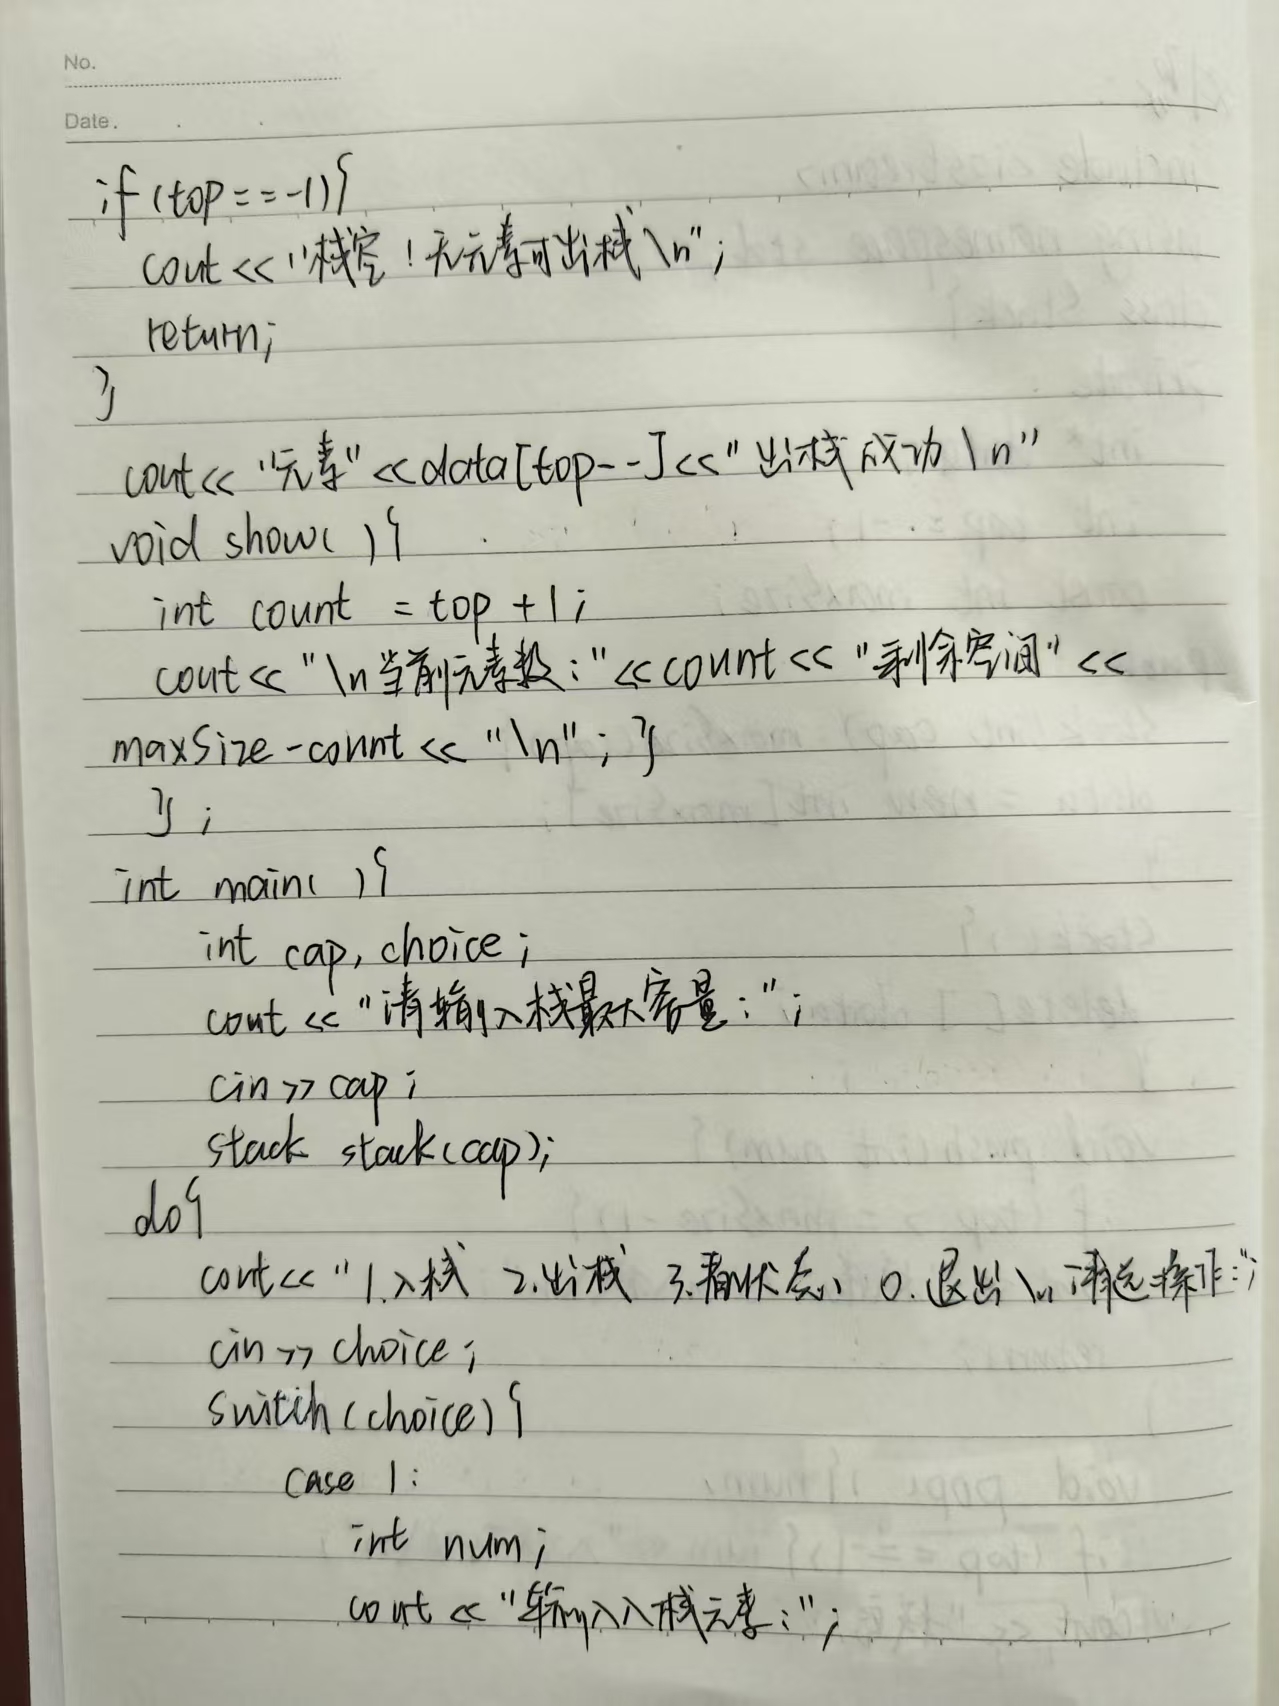 No.
Date.
if(top==-1){
cout<<"栈空!无元素可出栈\n";
return;
}
cout<<"元素"<<data[top--]<<"出栈成功\n"
void show(){
int count =top+1;
cout<<"\n当前元素数:"<<count<<"剩余空间"<<
maxSize-count<<"\n";}
};
int main(){
int cap,choice;
cout<<"请输入栈最大容量:";
cin>>cap;
stack stack(cap);
do{
cout<<"1.入栈 2.出栈 3.看状态 0.退出\n请选择操作:";
cin>>choice;
switch(choice){
case 1:
int num;
cout<<"输入入栈元素:";